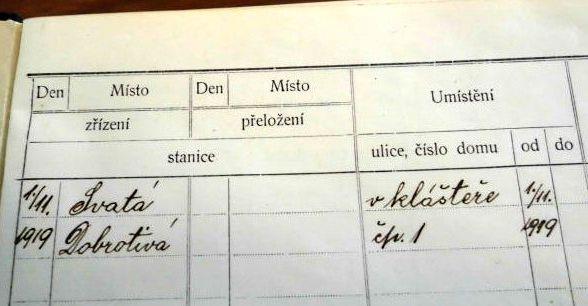 Den Místo Den Místo Umístění
zřízení přeložení
stanice ulice, číslo domu od do
1./11. Svatá v klášteře 1./11.
1919 Dobrotivá čp. 1 1919